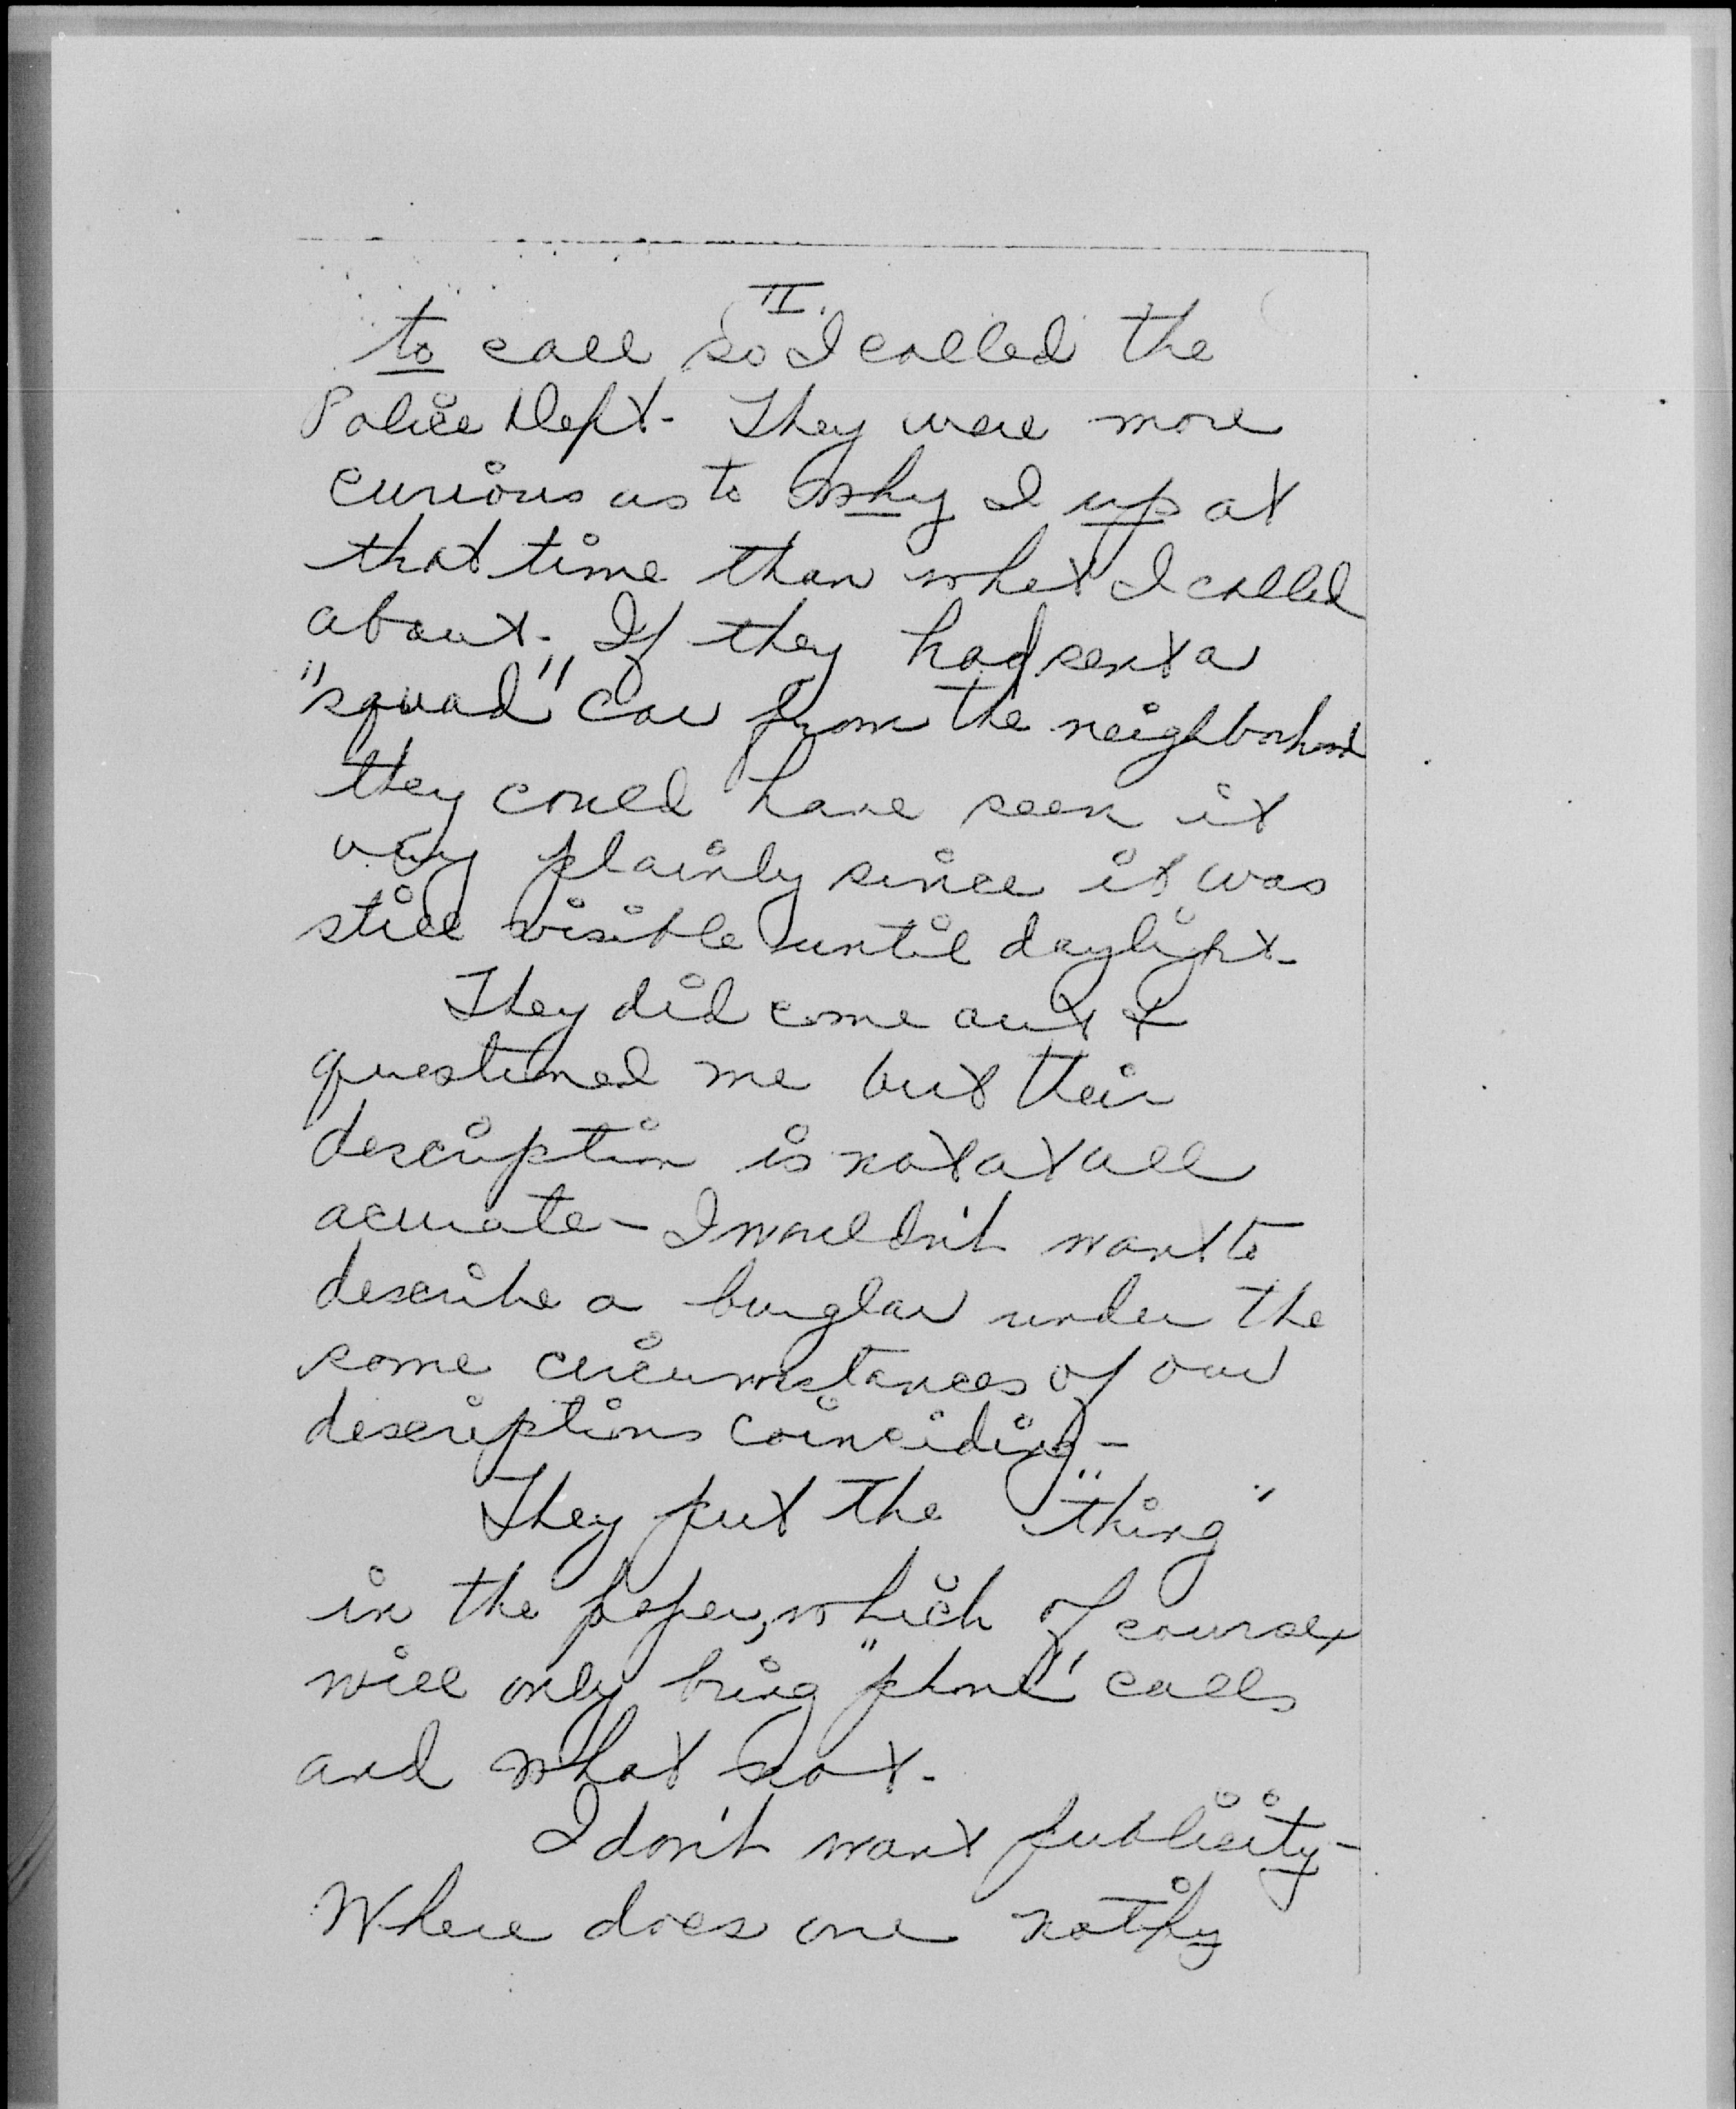 II.
to call so I called the
Police Dept- They were more
curious as to why I up at
that time than what I called
about. If they had sent a
"squad" car from the neighborhood
they could have seen it
very plainly since it was
still visible until daylight-
They did come out &
questioned me but their
description is not at all
acurate- I wouldn't want to
describe a burglar under the
same circumstances of our
descriptions coinciding-
They put the "thing"
in the paper, which of course
will only bring "phone" calls
and what not-
I don't want publicity-
Where does one notify